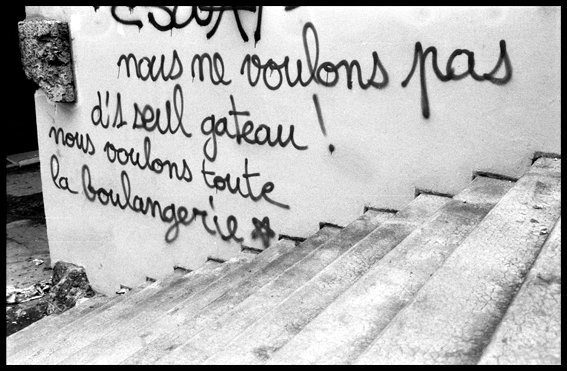 nous ne voulons pas
d's seul gateau !
nous voulons toute
la boulangerie